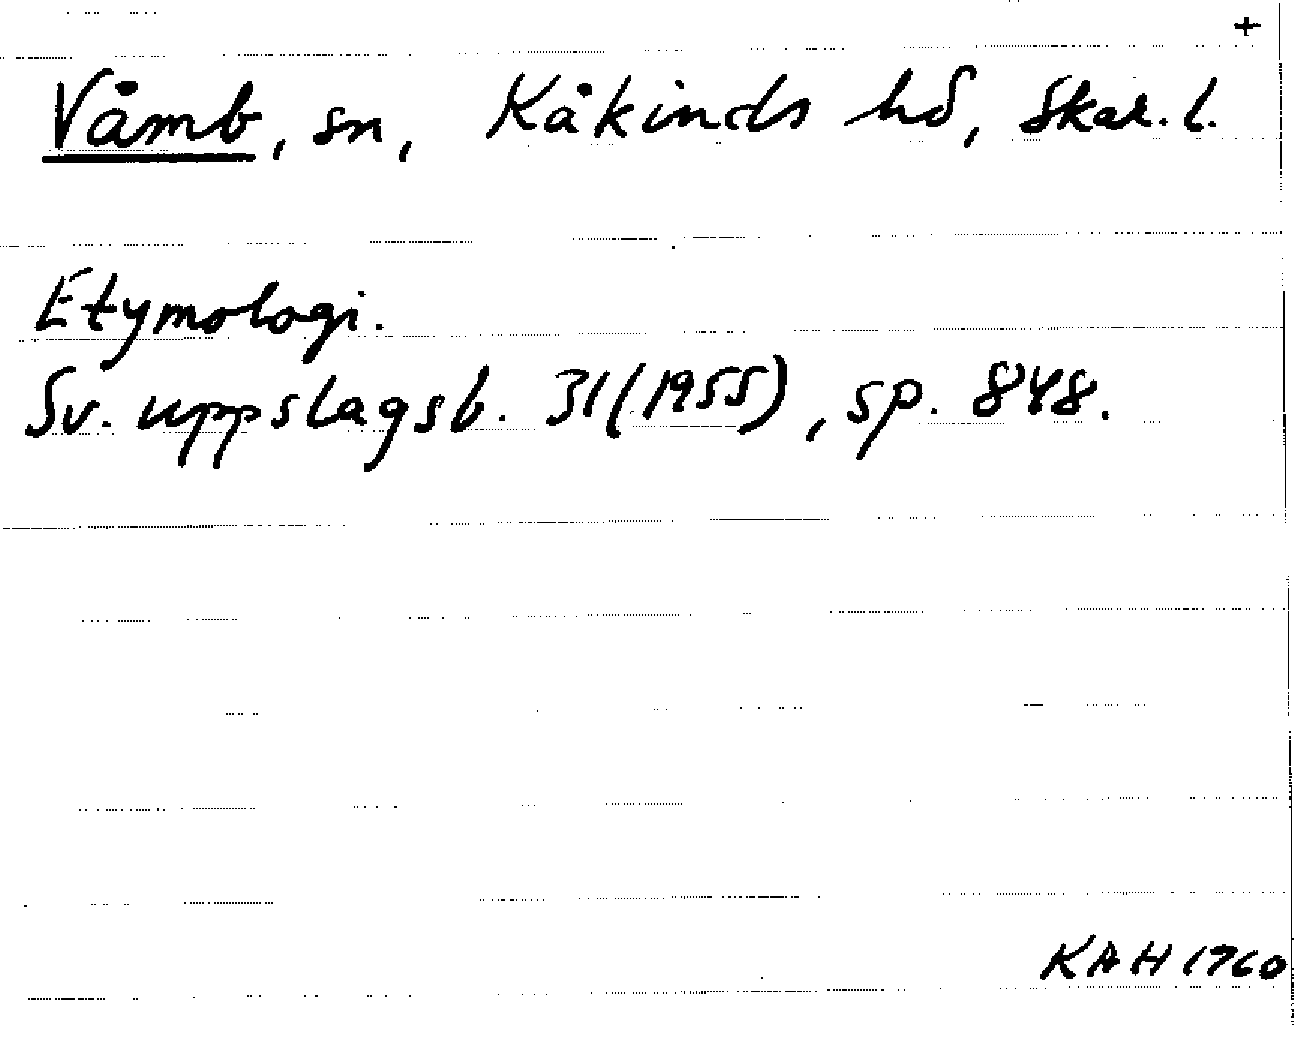 +
Våmb, sn, Kåkinds hd, Skar. l.
Etymologi.
Sv. uppslagsb. 31 (1955), sp. 848.
KAH 1760